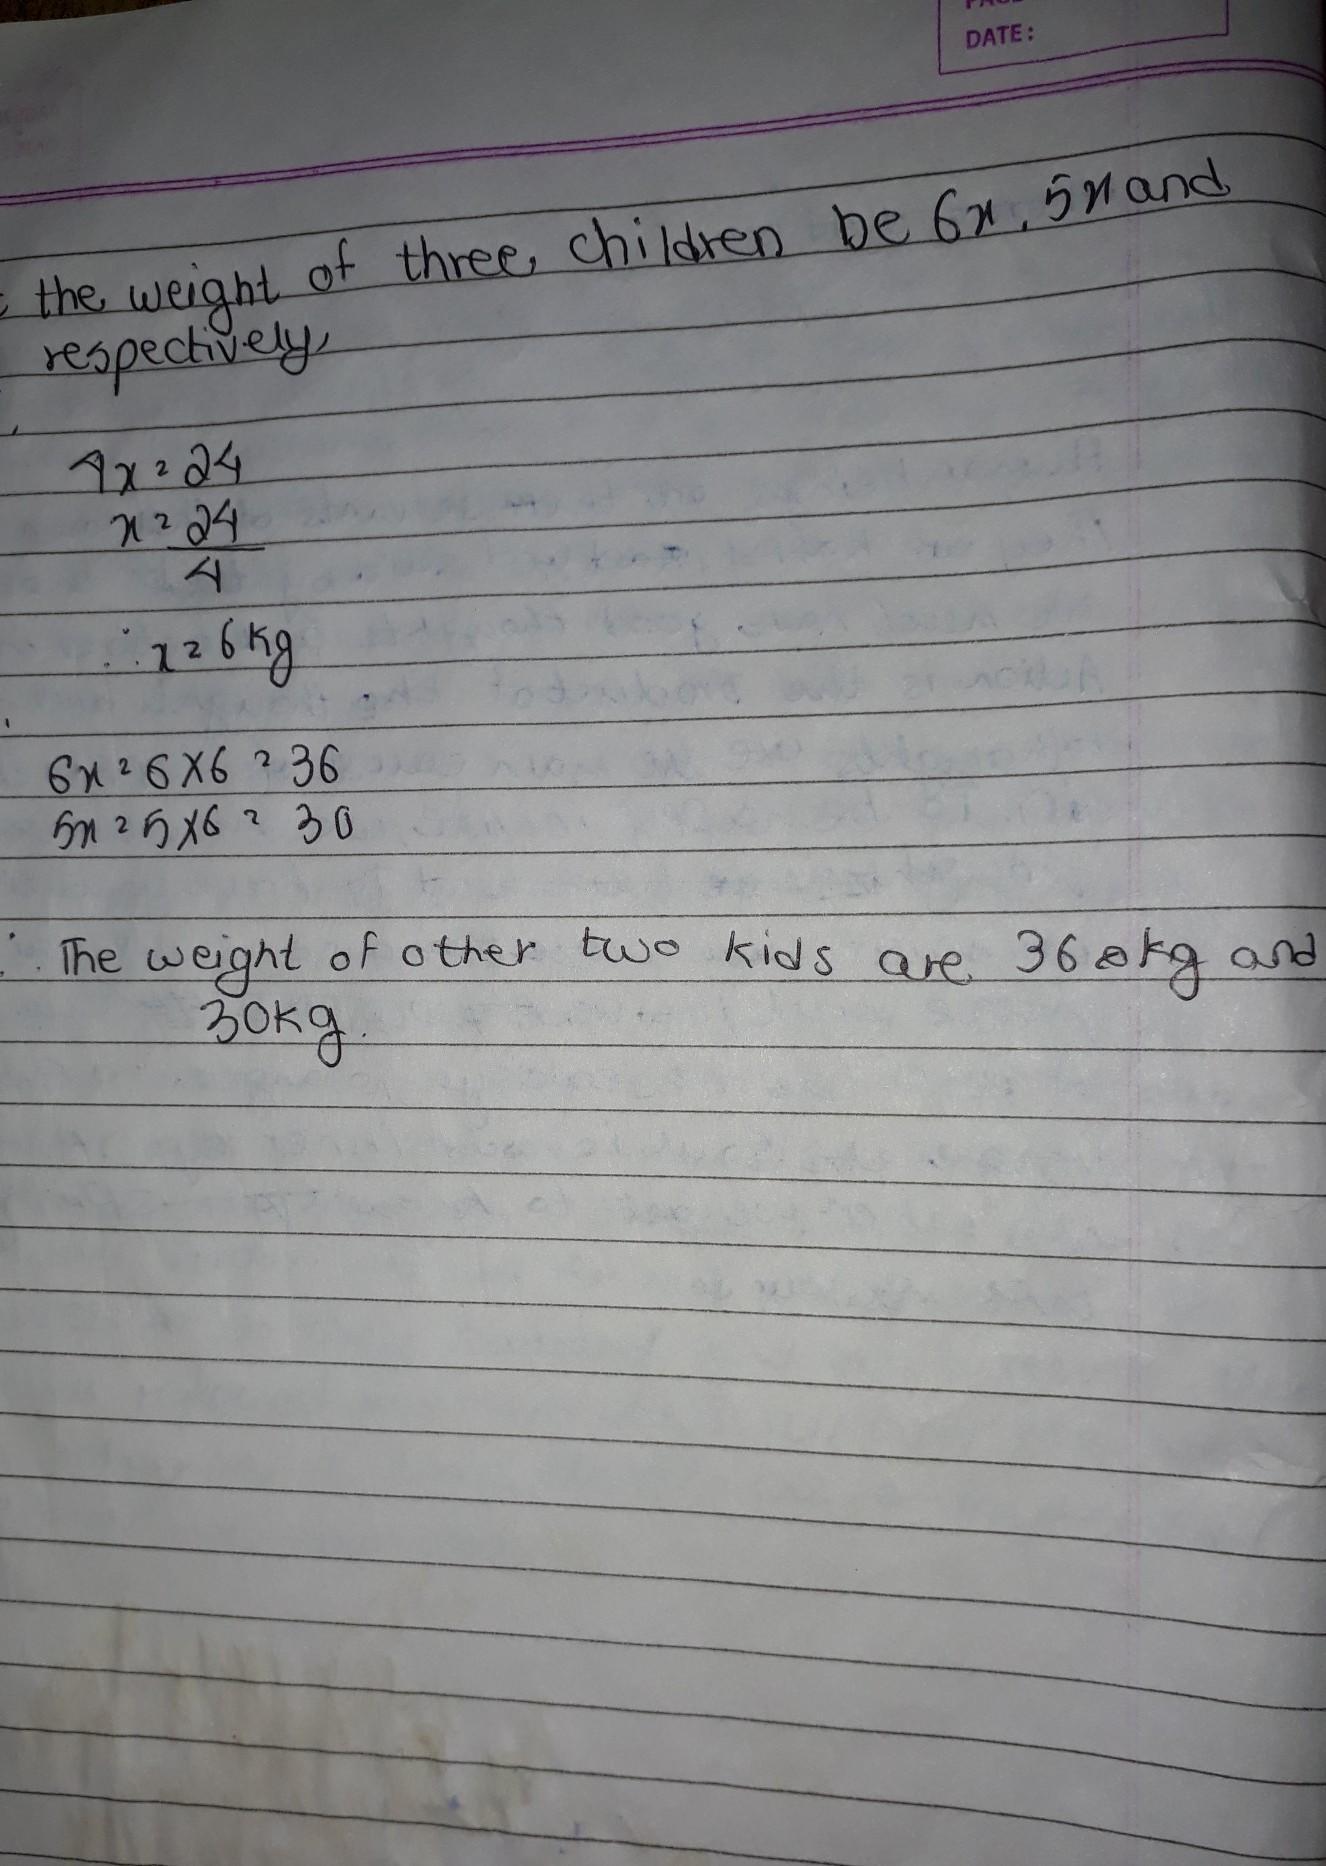 DATE:
the weight of three children be 6x, 5x and
respectively,
4x = 24
x = 24
4
∴ x = 6 kg
6x = 6 X 6 = 36
5x = 5 X 6 = 30
∴ The weight of other two kids are 36 kg and
30kg.